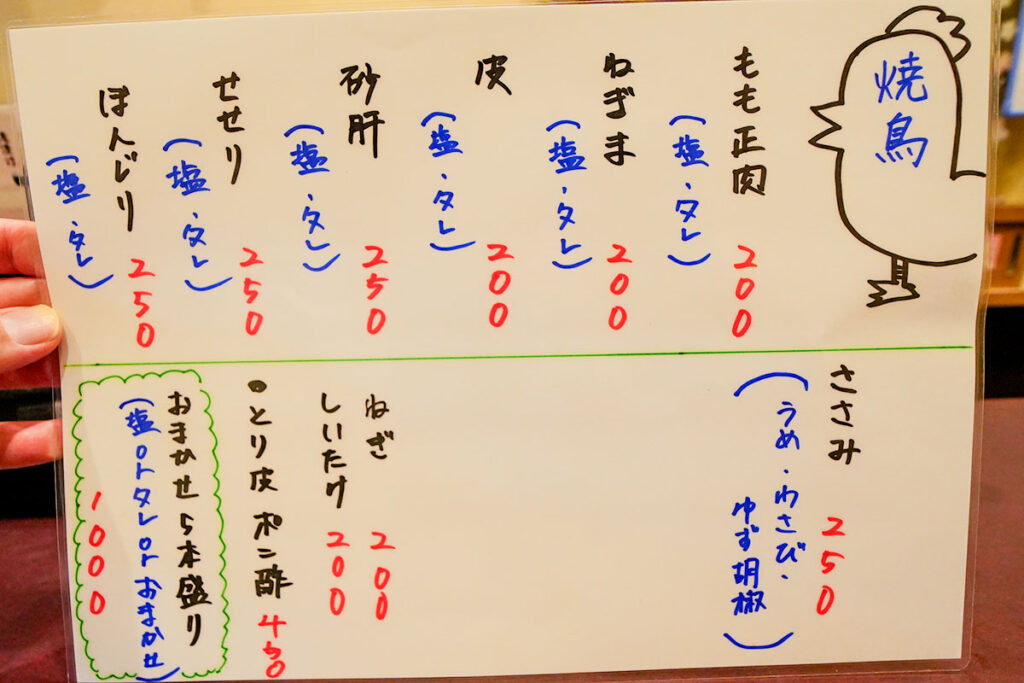 焼鳥
もも正肉 200
(塩・タレ)
ねぎま 200
(塩・タレ)
皮 200
(塩・タレ)
砂肝 250
(塩・タレ)
せせり 250
(塩・タレ)
ぼんじり 250
(塩・タレ)
ささみ 250
(うめ・わさび・
ゆず胡椒)
ねぎ 200
しいたけ 200
・とり皮ポン酢 450
おまかせ5本盛り
(塩orタレorおまかせ)
1000